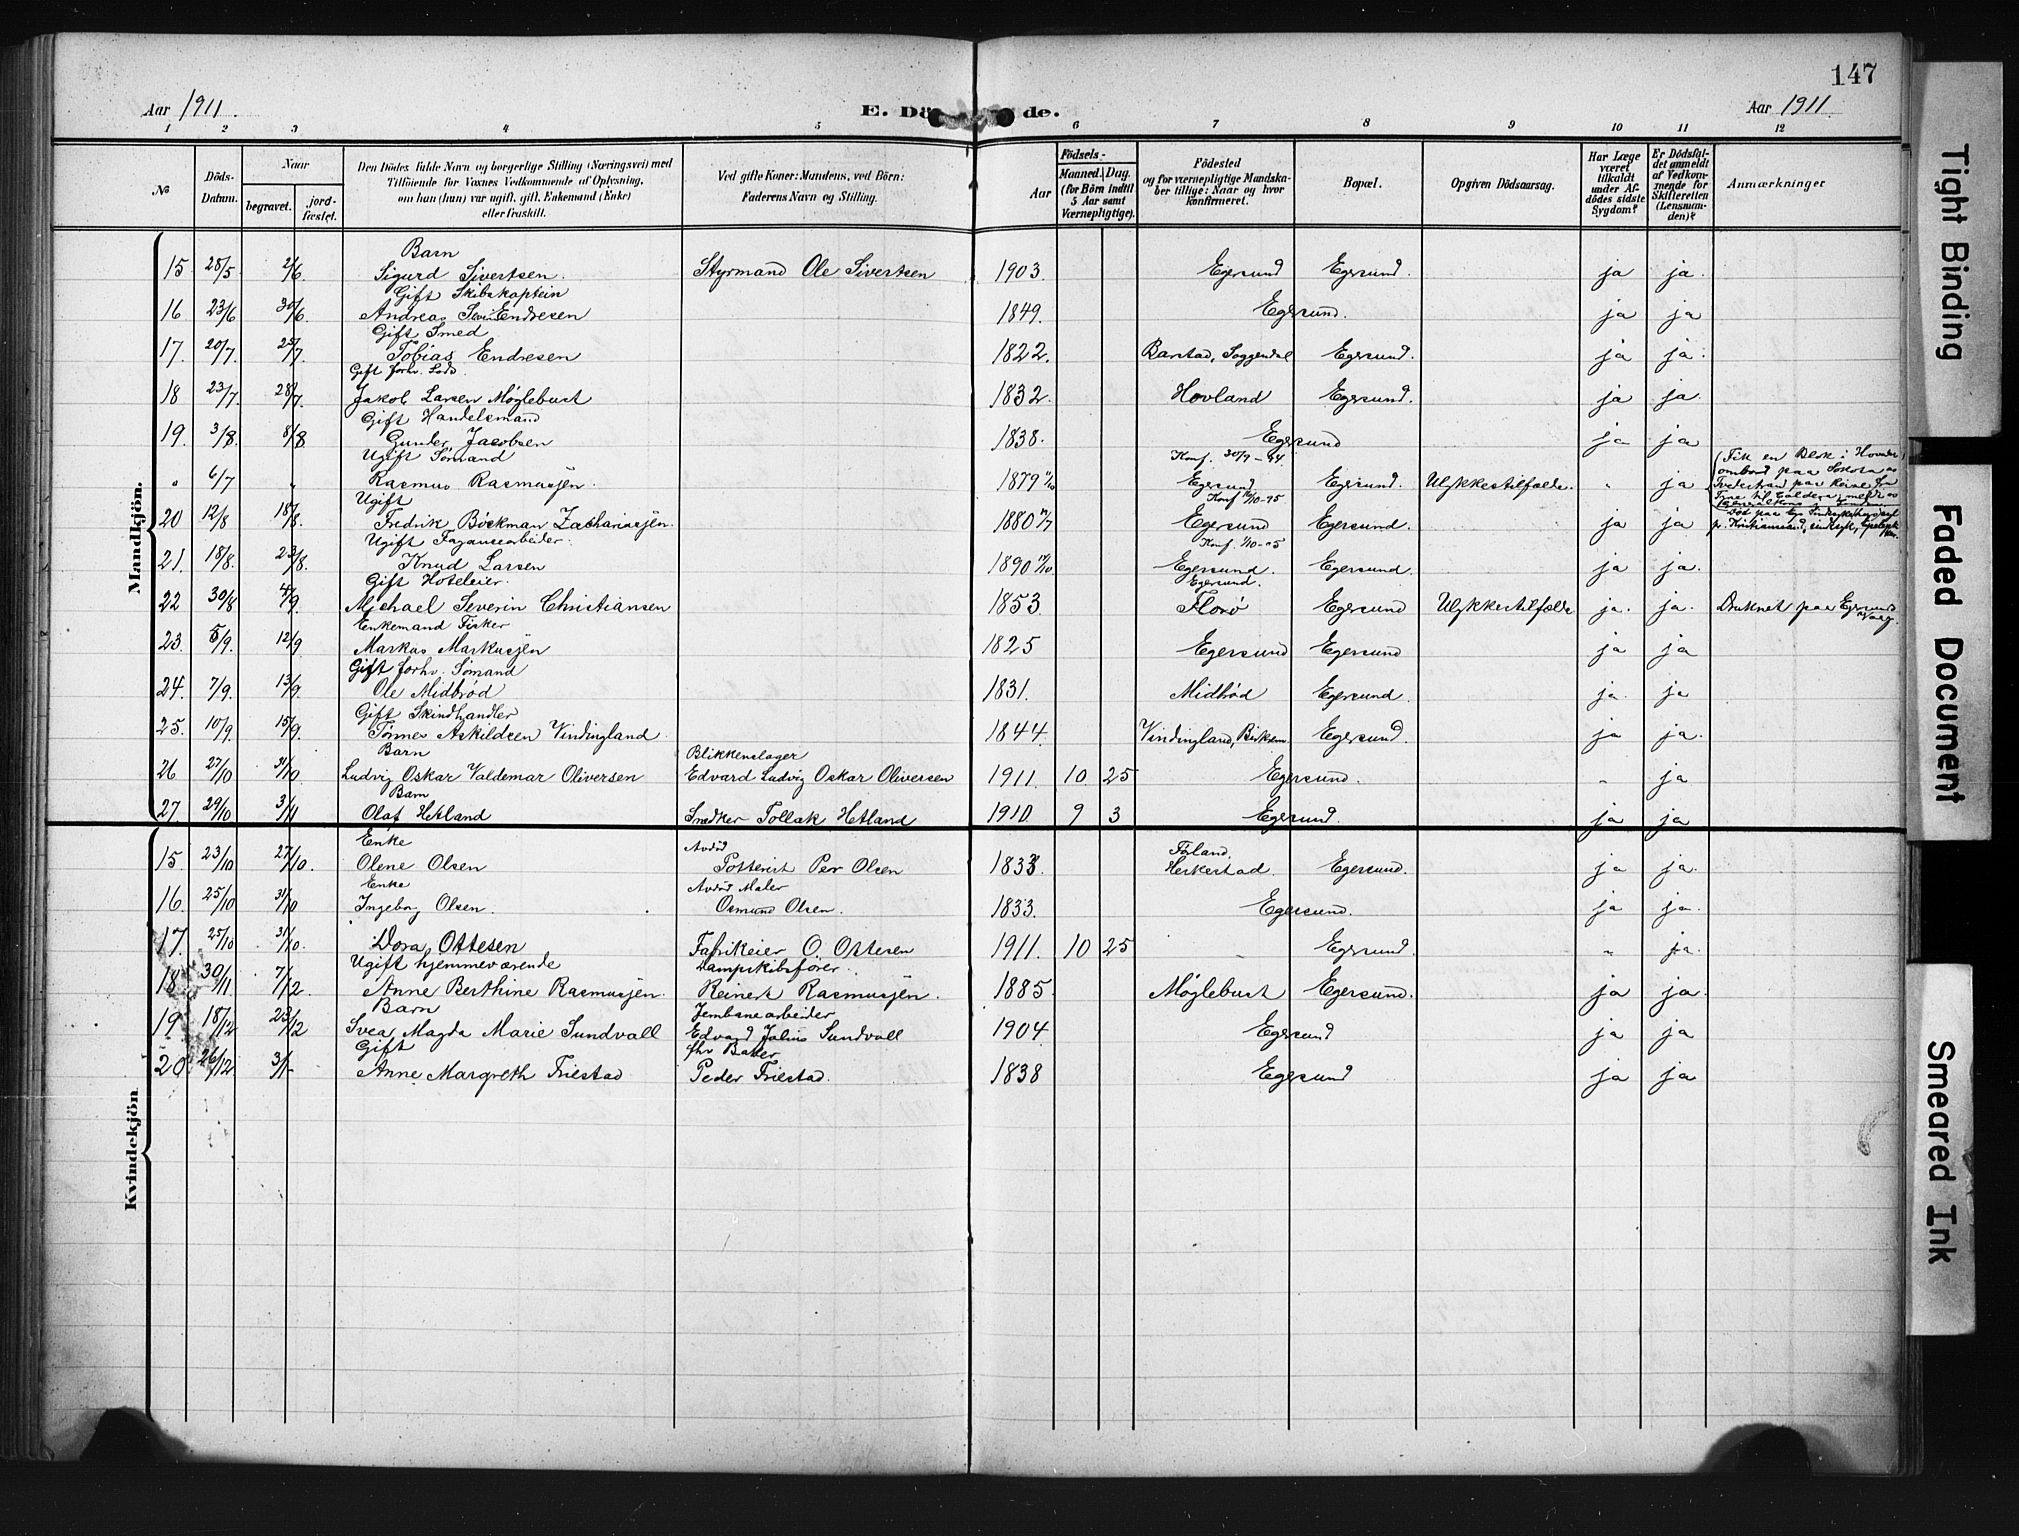 147
Aar 1911. E. Dö de. Aar 1911.
1 2 3 4 5 6 7 8 9 10 11 12
No
Döds-Datum.
Naar
begravet.
jord-fæstet.
Den Dödes fulde Navn og borgerlige Stilling (Næringsvei) med
Tilföiende for Voxnes Vedkommende af Oplysning,
om han (hun) var ugift, gift, Enkemand (Enke)
eller fraskilt.
Ved gifte Koner: Mandens, ved Börn:
Faderens Navn og Stilling.
Aar
Födsels-
Maaned. Dag.
(for Börn indtil
5 Aar samt
Værnepligtige).
Födested
og for værnepligtige Mandska-
ber tillige: Naar og hvor
konfirmeret.
Bopæl.
Opgiven Dödsaarsag.
Har Læge
været
tilkaldt
under Af-
dödes sidste
Sygdom?
Er Dödsfal-
det anmeldt
af Vedkom-
mende for
Skifteretten
(Lensman-
den)?
Anmærkninger
Mandkjön.
Barn
15 25/5 2/6 Sigurd Sivertsen. Styrmand Ole Sivertsen 1903. Egersund Egersund. ja ja.
Gift Skibskaptein
16 23/6 30/6 Andreas Endresen 1849. Egersund. ja ja
Gift Smed
17. 20/7. 25/7. Tobias Endresen 1822. Barstad, Soggendal Egersund. ja ja.
Gift forhv. Lods.
18 23/7. 28/7. Jakob Larsen Møglebust 1832. Hovland Egersund. ja ja.
Gift Handelsmand
19. 3/8. 8/8 Gunder Jacobsen 1838. Egersund ja ja
Ugift Sømand Konf. 30/9-94
" 6/7 " Rasmus Rasmussen. 1879 Egersund Egersund. Ulykkestilfælde. " ja (Fik en Blok i Hovedet
Ugift
20 12/8 18/8. Fredrik Bøckman Zachariassen. 1880 Egersund Egersund. ja ja
Ugift
21. 18/8. 23/8. Knud Larsen 1890 Egersund. Egersund. ja ja.
Gift Hoteleier. Egersund.
22 30/8 4/9. Michael Severin Christiansen 1853. Florø Egersund Ulykkestilfælde ja. ja. Druknet paa Egersunds Vaag.
Enkemand Fisker
23. 5/9. 12/9 Markus Markussen 1825 Egersund Egersund ja ja
Gift forhv. Sømand
24. 7/9. 13/9. Ole Midbrød 1831. Midbrød Egersund. ja. ja
Gift Skindhandler
25. 10/9. 15/9. Tønnes Askildsen Vindingland. 1844. Vindingland, Egersund. ja ja.
Barn Blikkenslager
26 27/10 31/10 Ludvig Oskar Valdemar Oliversen Edvard Ludvig Oskar Oliversen 1911 10. 25 Egersund. " ja
Barn
27 29/10 3/11 Olaf Hetland Snedker Tollak Hetland 1910. 9 3 Egersund. ja ja
Kvindekjön
Enke
15. 23/10 27/10. Olene Olsen Potterist Per Olsen 1833 Heskestad Egersund. ja ja.
Enke Maler
16. 25/10 31/10 Ingeborg Olsen. Osmund Olsen. 1833. Egersund. ja ja.
17. 25/10 31/10. Dora Ottesen Fabrikeier O. Ottesen 1911. 10 25 Egersund. " ja.
Ugift hjemmeværende Dampskibsfører.
18 30/11 7/12. Anne Berthine Rasmussen. Reinert Rasmussen. 1885. Møglebust Egersund. ja ja.
Barn Jernbanearbeider
19 18/12 23/12 Svea Magda Marie Sundvall Edvard Julius Sundvall 1904. Egersund ja ja
Gift fhv Bager
20. 26/12. 3/1- Anne Margreth Friestad Peder Friestad. 1838 Egersund ja ja
Tight Binding
Faded Document
Smeared Ink